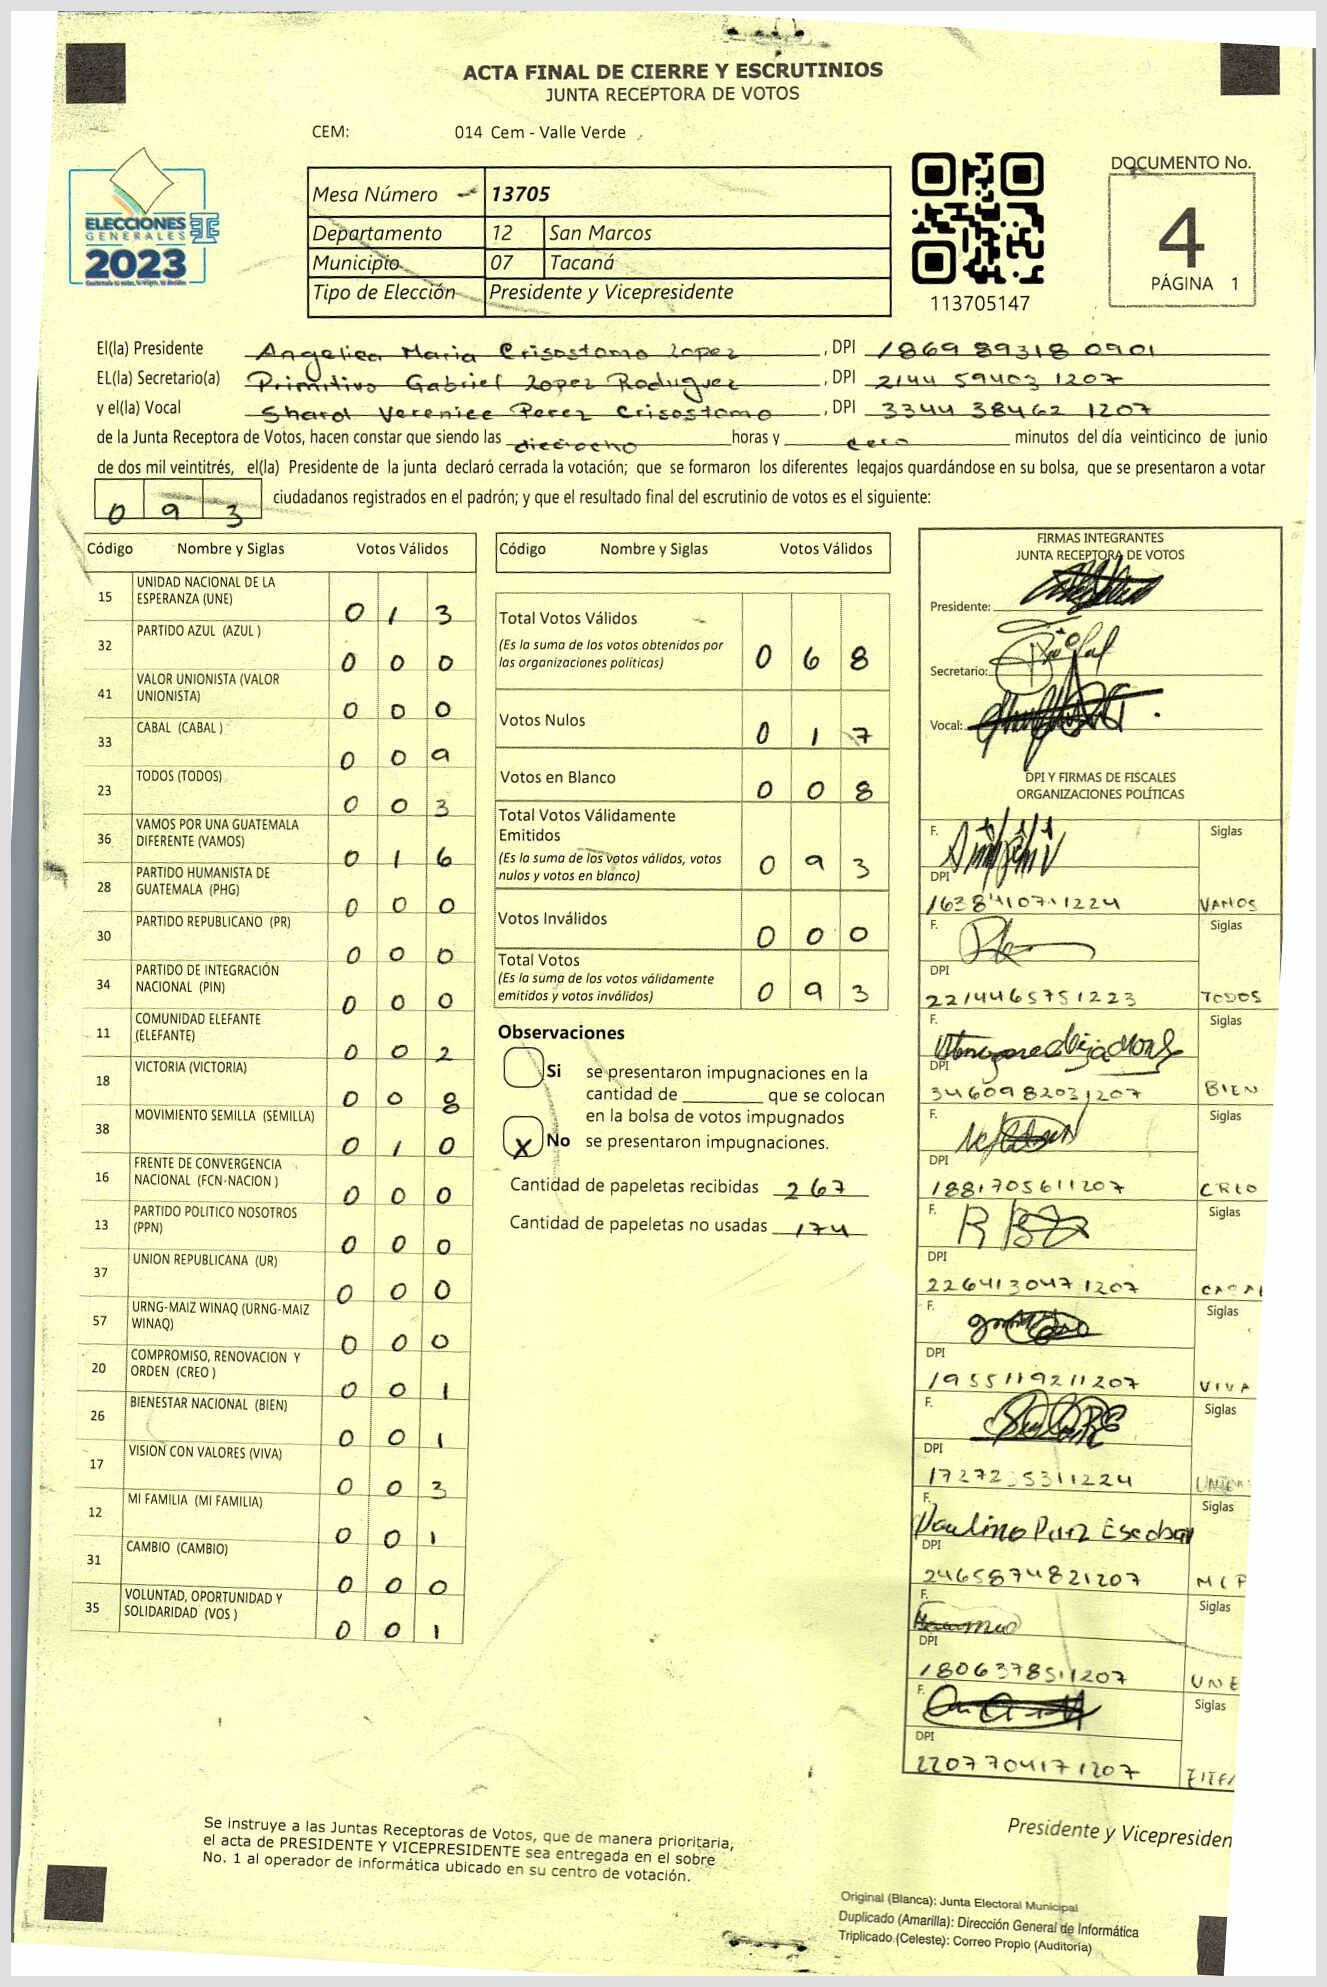 ACTA FINAL DE CIERRE Y ESCRUTINIOS
JUNTA RECEPTORA DE VOTOS
CEM: 014 Cem - Valle Verde
ELECCIONES
GENERALES
2023
Mesa Número 13705
Departamento 12 San Marcos
Municipio 07 Tacaná
Tipo de Elección Presidente y Vicepresidente
113705147
DOCUMENTO No.
4
PÁGINA 1
El(la) Presidente Angelica Maria Crisostomo Lopez, DPI 1869 89318 0901
EL(la) Secretario(a) Primitivo Gabriel Lopez Rodriguez, DPI 2144 59403 1207
y el(la) Vocal Sharol Verenice Perez Crisostomo, DPI 3344 38462 1207
de la Junta Receptora de Votos, hacen constar que siendo las dieciocho horas y cero minutos del día veinticinco de junio
de dos mil veintitrés, el(la) Presidente de la junta declaró cerrada la votación; que se formaron los diferentes legajos quardándose en su bolsa, que se presentaron a votar
093 ciudadanos registrados en el padrón; y que el resultado final del escrutinio de votos es el siguiente:
Código Nombre y Siglas Votos Válidos
15 UNIDAD NACIONAL DE LA ESPERANZA (UNE) 013
32 PARTIDO AZUL (AZUL ) 000
41 VALOR UNIONISTA (VALOR UNIONISTA) 000
33 CABAL (CABAL ) 009
23 TODOS (TODOS) 003
36 VAMOS POR UNA GUATEMALA DIFERENTE (VAMOS) 016
28 PARTIDO HUMANISTA DE GUATEMALA (PHG) 000
30 PARTIDO REPUBLICANO (PR) 000
34 PARTIDO DE INTEGRACIÓN NACIONAL (PIN) 000
11 COMUNIDAD ELEFANTE (ELEFANTE) 002
18 VICTORIA (VICTORIA) 008
38 MOVIMIENTO SEMILLA (SEMILLA) 010
16 FRENTE DE CONVERGENCIA NACIONAL (FCN-NACION ) 000
13 PARTIDO POLITICO NOSOTROS (PPN) 000
37 UNION REPUBLICANA (UR) 000
57 URNG-MAIZ WINAQ (URNG-MAIZ WINAQ) 000
20 COMPROMISO, RENOVACION Y ORDEN (CREO ) 001
26 BIENESTAR NACIONAL (BIEN) 001
17 VISION CON VALORES (VIVA) 003
12 MI FAMILIA (MI FAMILIA) 001
31 CAMBIO (CAMBIO) 000
35 VOLUNTAD, OPORTUNIDAD Y SOLIDARIDAD (VOS ) 001
Código Nombre y Siglas Votos Válidos
Total Votos Válidos 068
(Es la suma de los votos obtenidos por
las organizaciones políticas)
Votos Nulos 017
Votos en Blanco 008
Total Votos Válidamente
Emitidos 093
(Es la suma de los votos válidos, votos
nulos y votos en blanco)
Votos Inválidos 000
Total Votos 093
(Es la suma de los votos válidamente
emitidos y votos inválidos)
Observaciones
Si se presentaron impugnaciones en la
cantidad de ________ que se colocan
en la bolsa de votos impugnados
X No se presentaron impugnaciones.
Cantidad de papeletas recibidas 267
Cantidad de papeletas no usadas 174
FIRMAS INTEGRANTES
JUNTA RECEPTORA DE VOTOS
Presidente:
Secretario:
Vocal:
DPI Y FIRMAS DE FISCALES
ORGANIZACIONES POLÍTICAS
F. Siglas
DPI
1638410711224 VAMOS
F. Siglas
DPI
2214465751223 TODOS
F. Siglas
DPI
3460982031207 BIEN
F. Siglas
DPI
1881705611207 CREO
F. Siglas
DPI
2264130471207
F. Siglas
DPI
1955119211207 VIVA
F. Siglas
DPI
1727235311224
F. Paulino Siglas
DPI
2465874821207
F. Siglas
DPI
1806378511207 UNE
F. Siglas
DPI
2207704171207
Se instruye a las Juntas Receptoras de Votos, que de manera prioritaria,
el acta de PRESIDENTE Y VICEPRESIDENTE sea entregada en el sobre
No. 1 al operador de informática ubicado en su centro de votación.
Presidente y Vicepresiden
Original (Blanca): Junta Electoral Municipal
Duplicado (Amarilla): Dirección General de Informática
Triplicado (Celeste): Correo Propio (Auditoría)